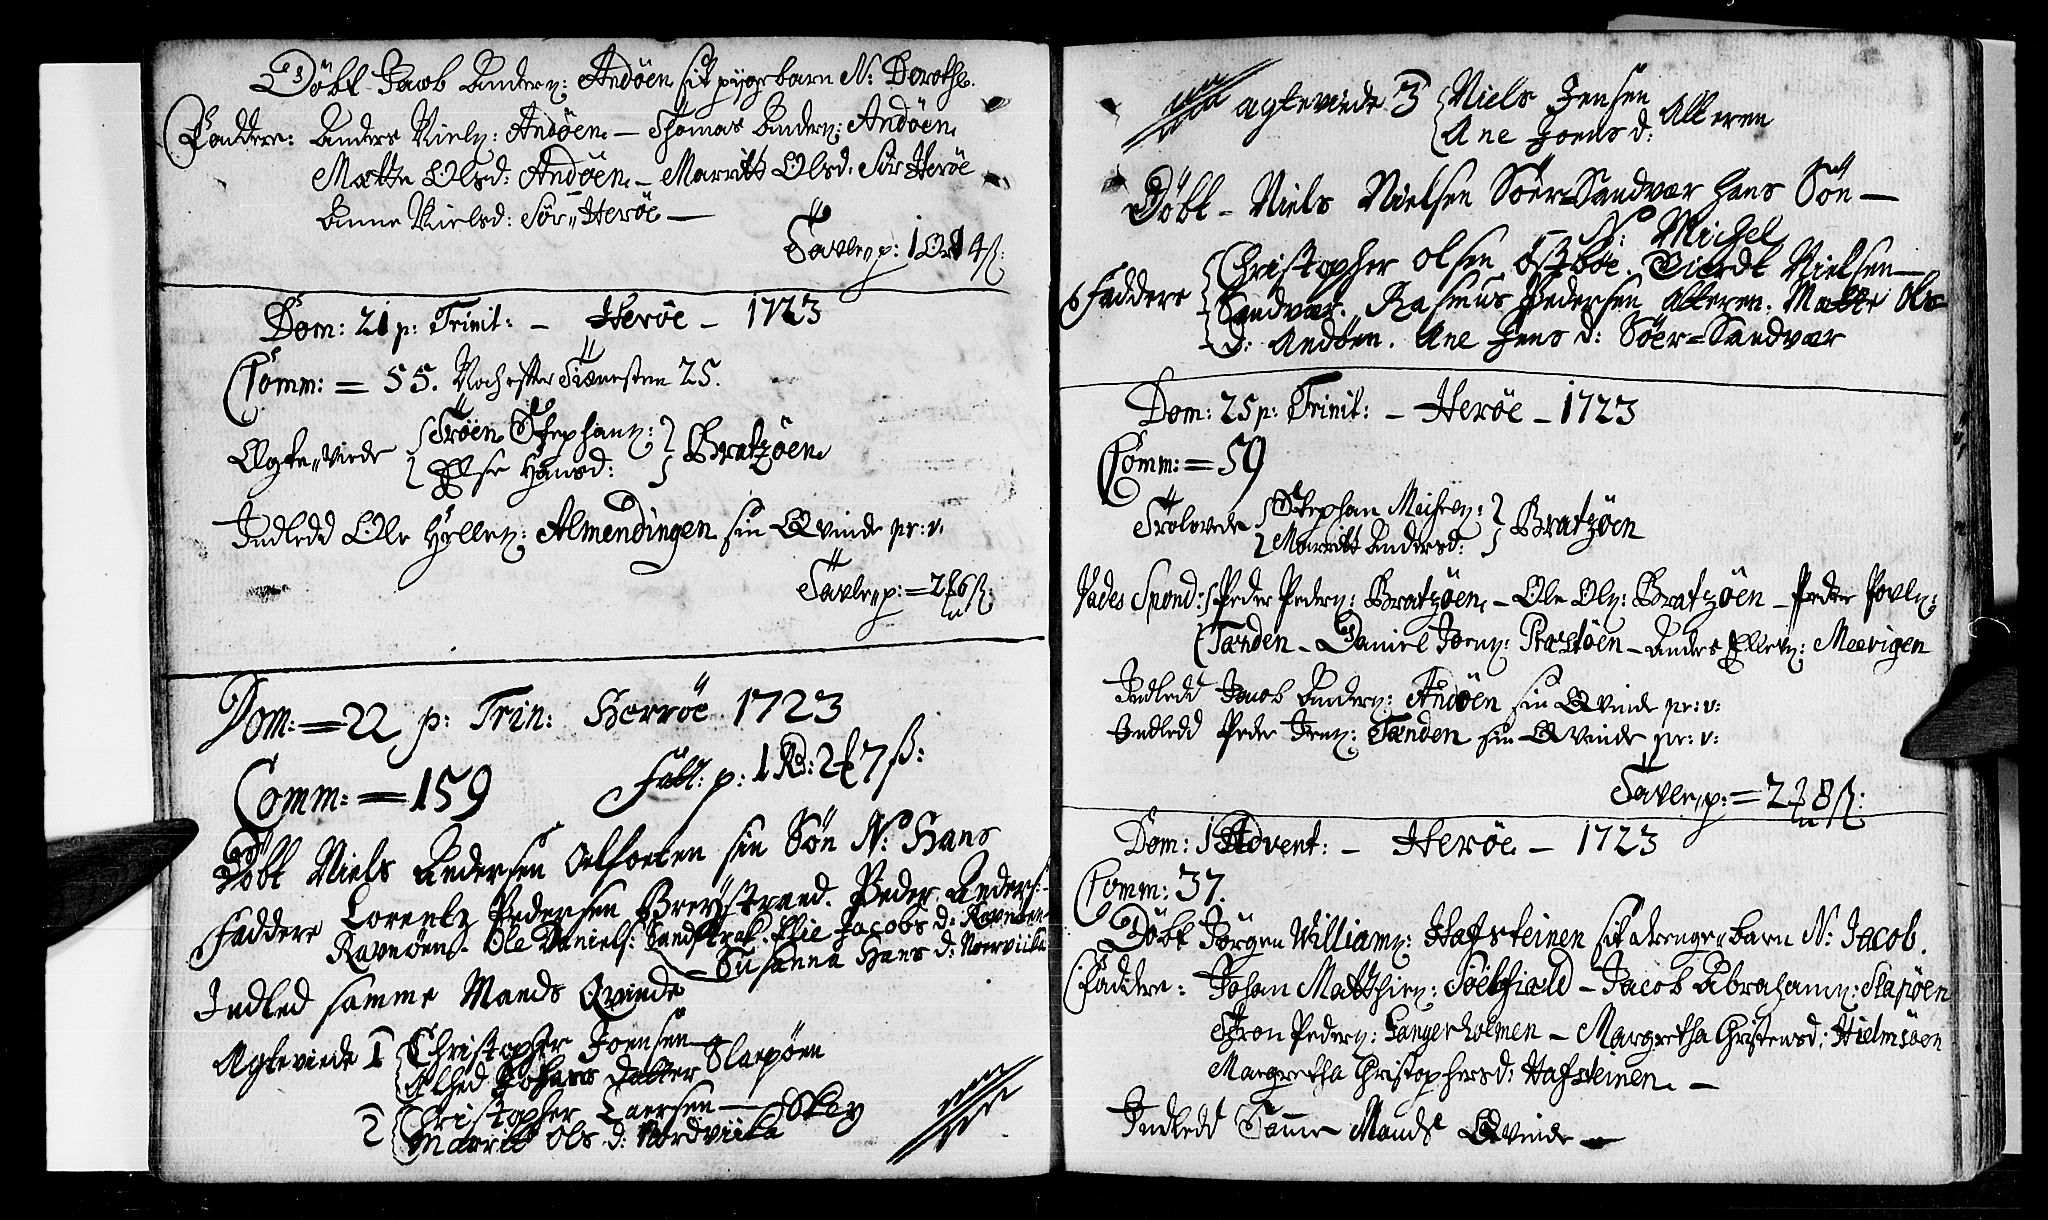 Döbt Jacob Anders: Andöen sit pygebarn N: Dorothe.
Faddere: Anders Niels: Andöen – Thomas Anders: Andöen,
Mætte Olsd: Andöen – Marritt Olsd: Sör Heröe
Anne Nielsd: Sör Heröe –
Tavlen p: 1 Ort 4 ß:
Dom: 21 p: Trinit: – Heröe – 1723
Comm: = 55. Noch efter Tienesten 25.
Ægte viede { Tröen Stephans: } Bratzöen
{ Else Hansd: }
Indledd Ole Hellez: Almendingen sin Qvinde pr: v:
Tavlen p: = 2 6 ß:
Dom: = 22 p: Trin: Herröe 1723
Comm: = 159
Tabl: p: 1 Rd: 2 7 ß:
Döbt Niels Andersen sin Sön N: Hans
Faddere Lorentz Pedersen Breystrand. Peder Anders:
Ravnöen. Ole Daniels: Sandstrak. Elie Jacobs d: Ravnöen
Susanna Hans d: Norviika
Indled samme Mands Qvinde
Ægteviede 1 { Christopher Joensen
Alhed Johans Datter Slapöen
2 { Christopher Larsen – Skey
Marrit Ols d: Nordviika
Ægteviede 3 { Niels Jensen
Ane Joens d: Alteren
Döbt – Niels Nielsen Söer=Sandvær hans Sön –
N: Michel
Faddere { Christopher Olsen Östböe. Sivert Nielsen –
Sandvær. Rasmus Pedersen Alteren. Mætte Ols
d: Andöen. Ane Jens d: Söer=Sandvær
Dom: 25 p: Trinit: – Heröe – 1723
Comm: = 59
Trolovede { Stephan Michelz: } Bratzöen
{ Marritt Andersd: }
Vades Spond: { Peder Peders: Bratzöen – Ole Ols: Bratzöen – Peder Povls:
Tænden – Daniel Joens: Præstöen – Anders Ellers: Meevigen
Indledd Jacob Anders: Andöen sin Qvinde pr: v:
Indledd Peder Jens: Tænden sin Qvinde pr: v:
Tavlen p: = 2 8 ß:
Dom: 1 Advent: – Heröe – 1723
Comm: 37.
Döbt Jörgen Williams: Hafsteinen sit drenge barn N: Jacob.
Faddere: Johan Matthies: Söelfiæld – Jacob Abrahams: Slapöen
Tron Peders: Langerholmen – Margretha Christensd: Hielmsöen
Margretha Christophersd: Hafsteinen. –
Indledd Samme Mands Qvinde –